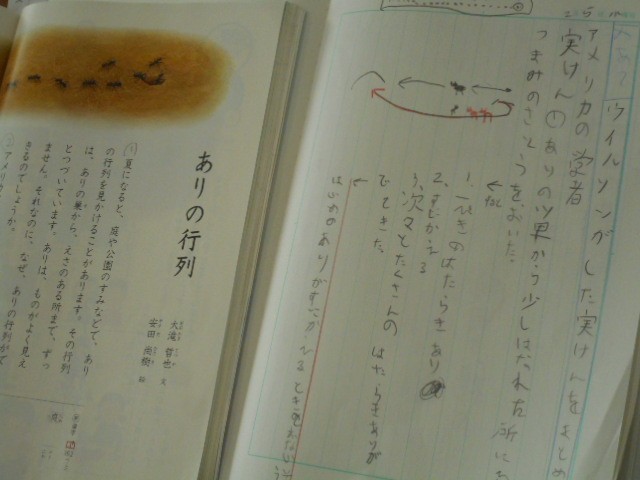 ありの行列
大滝哲也 文
安田尚樹 絵
① 夏になると、庭や公園のすみなどで、あり
の行列を見かけることがあります。その行列
は、ありの巣から、えさのある所まで、ずっ
とつづいています。ありは、ものがよく見え
ません。それなのに、なぜ、ありの行列がで
きるのでしょうか。
② アメリカ
ウイルソンがした実けんをまとめ
アメリカの学者
実けん① ありの巣から少しはなれた所に
つまみのさとうをおいた。
1、一ぴきのはたらきあり
2、すにかえる
3、次々とたくさんのはたらきありが
でてきた。
はじめのありがすにかえるとき